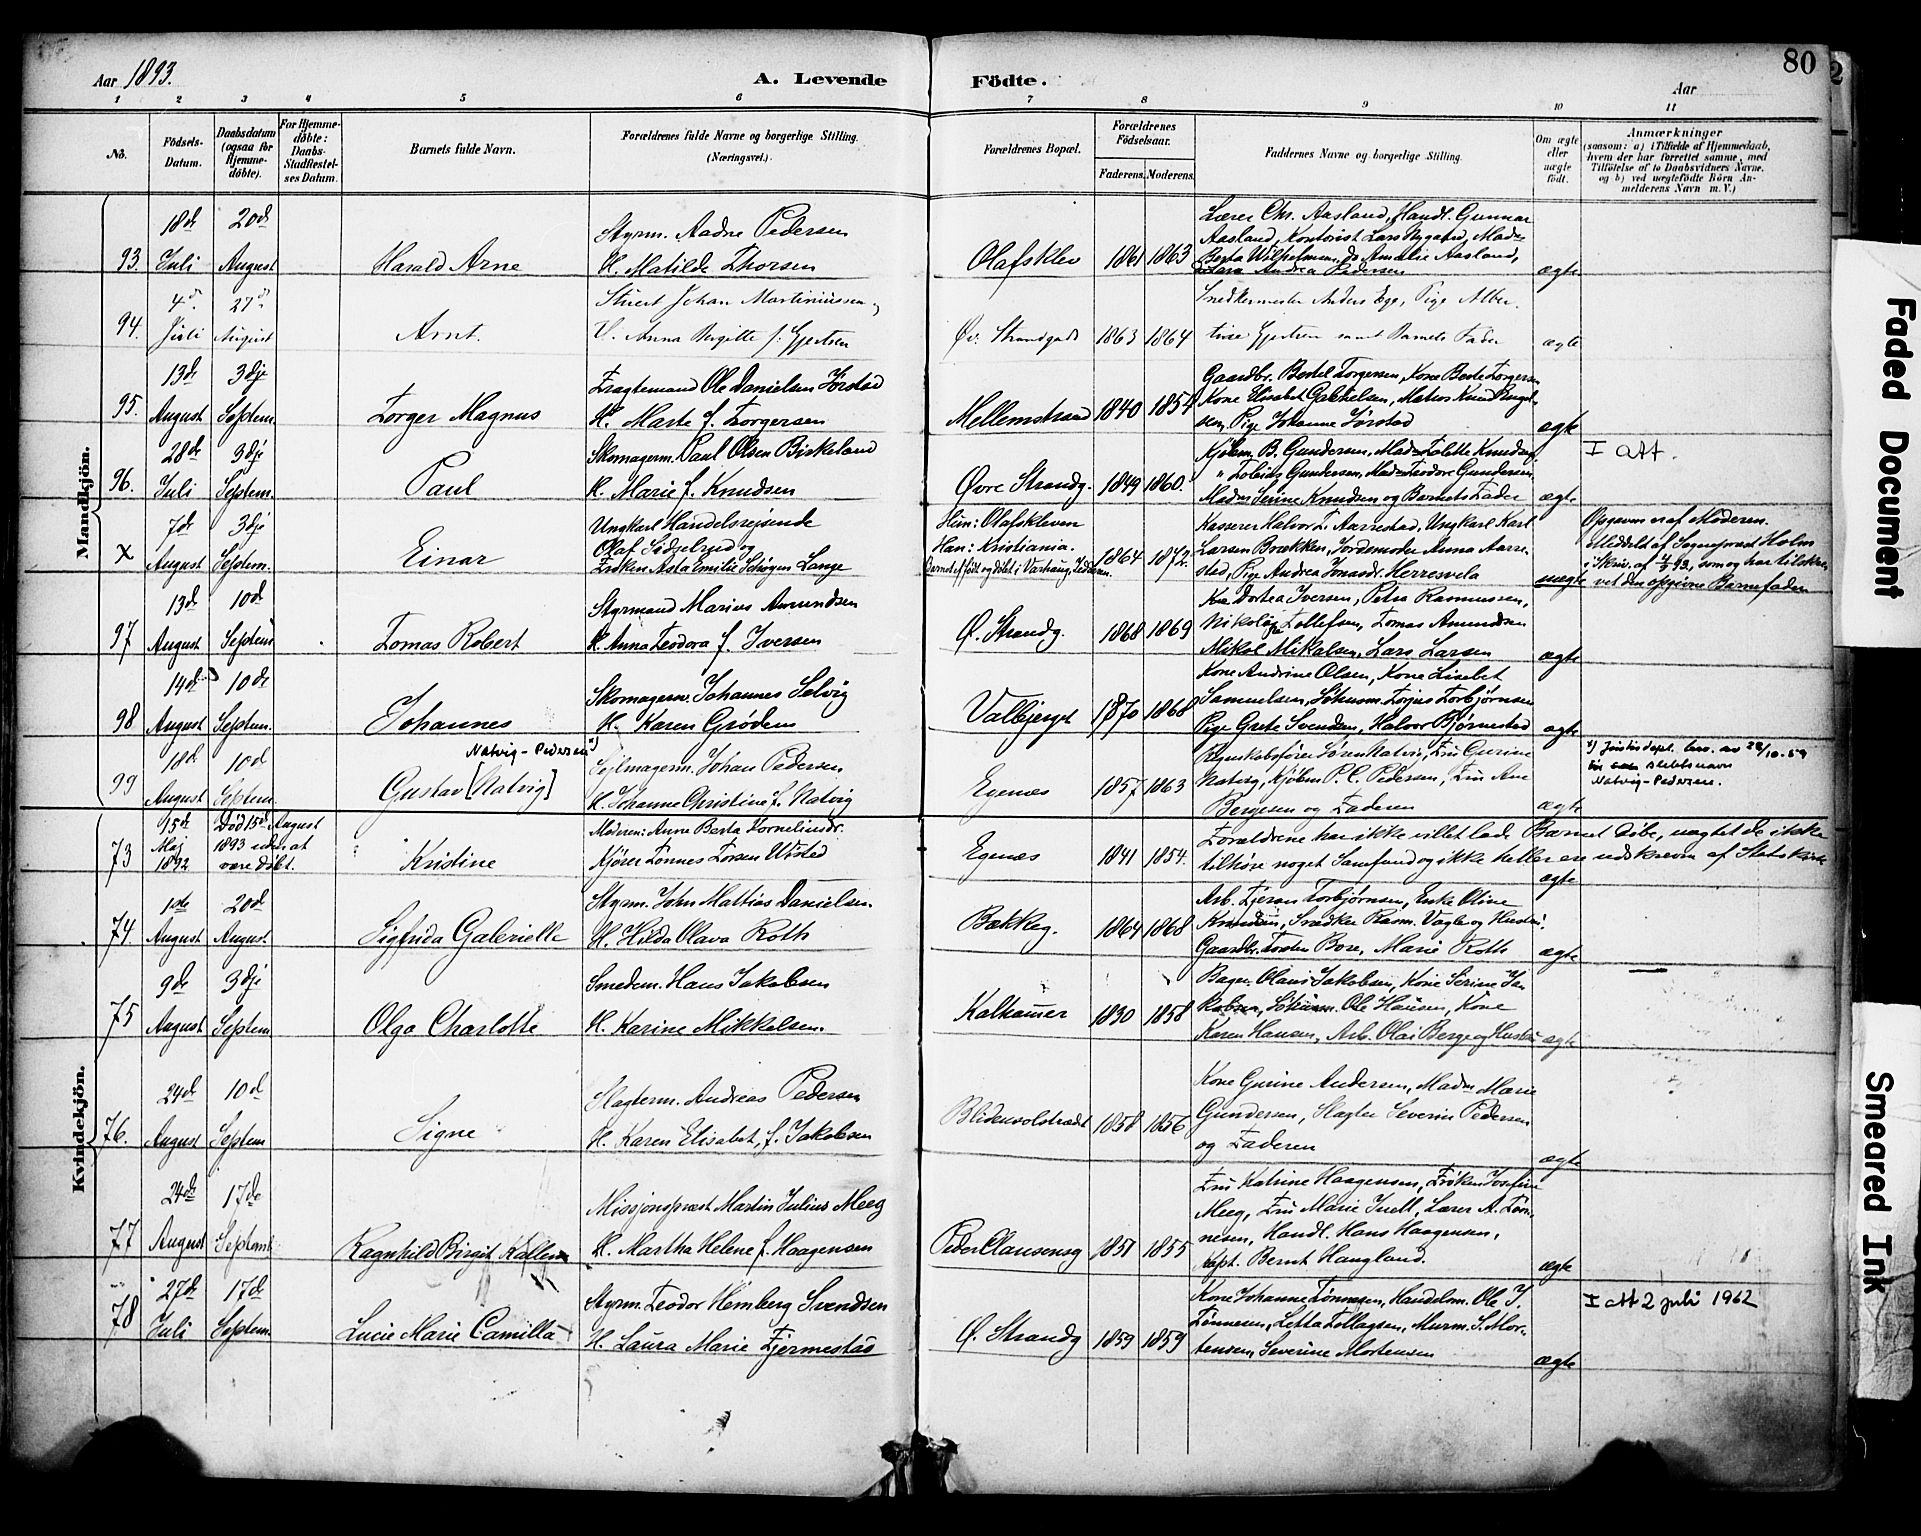 80
Aar 1893.
A. Levende Födte.
Aar
1 2 3 4 5 6 7 8 9 10 11
No.
Födsels-Datum.
Daabsdatum (ogsaa for Hjemme-døbte).
For Hjemme-døbte: Daabs-Stadfæstel-ses Datum.
Barnets fulde Navn.
Forældrenes fulde Navne og borgerlige Stilling.
(Næringsvei.)
Forældrenes Bopæl.
Forældrenes Födselsaar.
Faderens. Moderens.
Faddernes Navne og borgerlige Stilling.
Om ægte eller uægte født.
Anmærkninger
(saasom: a) i Tilfælde af Hjemmedaab,
hvem der har forrettet samme, med
Tilföielse af to Daabsvidners Navne.
og b) ved uægtefödte Börn An-
melderens Navn m. V.)
Mandkjön.
93. 18de Juli 20de August Harald Arne
Styrm. Aadne Pedersen
H. Matilde Thorsen
Olafsklev 1861 1863
Lærer Chr. Aasland, Handl. Gunnar
Aasland, Kontorist Lars Nygaard, Mad-
Berta Wilhelmsen, do Amalie Aasland,
Andrea Pedersen
ægte
94. 4de Juli 27de August Arnt.
Stuert Johan Martiniussen,
H. Anna Bergitte f. Gjertsen
Øv. Strandgade 1863 1864
Snedkermester Anders Ege, Pige Alber-
tine Gjertsen samt Barnets Fader
ægte
95. 13de August 3dje Septem. Torger Magnus
Fragtemand Ole Danielsen Jørstad
H. Marte f. Torgersen
Mellemstrand 1840 1854
Gaardbr. Bertel Torgersen, Kone Berte Torgersen
Kone Elisabet Gabrielsen, Matros Knud Bengt-
sen, Pige Johanne Jørstad
ægte
96. 28de Juli 3dje Septem. Paul
Skomagerm. Paul Olsen Birkeland
H. Marie f. Knudsen
Øvre Strandg. 1849 1860.
Kjøbm. B. Gundersen, Mad- Lalitte Knudsen
" Tobias Gundersen, Mad- Teodore Gundersen
Madm Serine Knudsen og Barnets Fader
ægte
I att.
X 7de August 3dje Septem. Einar
Ungkarl Handelsrejsende
Olaf Sidselrud og
Frøken Asta Emilie Schøyen Lange
Hun: Olafskleven
Han: Kristiania.
Barnet født og døbt i Varhaug,
1864 1872.
Kasserer Halvor T. Aarrestad, Ungkarl Karl
Larsen Brækken, Jordemoder Anna Aarre-
stad, Pige Andrea Jonasdr. Herresvela
uægte
Opgaven er af Moderen.
Meddelt af Sogneprest Holm
i Skriv. af 4/9 93, som og har tilskre-
vet den opgivne Barnefader
97 13de August 10de Septem Tomas Robert
Styrmand Marius Amundsen
H. Anna Teodora f. Iversen
Ø. Strandg. 1868 1869
Kone Dortea Iversen, Petra Rasmussen,
Nikolai Tollefsen, Tomas Amundsen
Mikal Mikalsen, Lars Larsen
ægte
98 14de August 10de Septem. Johannes
Skomagerm. Johannes Selvig
H. Karen Grødem
Valbjerget 1870 1868
Kone Andrine Olsen, Kone Lisebet
Samuelsen, Lohnsm. Torjus Torbjørnsen
Pige Grete Svendsen, Halvor Bjørnestad
ægte
99 18de August 10de Septem. Gustav [Natvig]
Natvig-Pedersen x)
Sejlmagerm. Johan Pedersen
H. Johanne Christine f. Natvig
Egenæs 1857 1863
Regnskabsfører Søren Natvig, Fru Gurine
Natvig, Kjøbm P. C. Pedersen, Fru Ane
Bergesen og Faderen
ægte
x) Justisdept. bev. av 28/10.59
slektsnavn
Natvig-Pedersen.
Kvindekjön.
73 15de Maj 1892
Død 15de August
1893 uden at
være døbt.
Kristine
Moderen: Anne Berta Korneliusdr.
Kjører Tonnes Torsen Ulstad
Egenæs 1841 1854.
Forældrene har ikke villet lade Barnet døbe, uagtet de ikke
tilhøre noget Samfund og ikke heller ere udskrevne af Statskirke
ægte
74 1ste August 20de August. Sigfrida Gabrielle
Styrm. John Mattias Danielsen.
H. Hilda Olava Roth
Bækkeg. 1864 1868
Arb. Tjeran Torbjørnsen, Enke Oline
Knudsen, Snedker Rasm. Vagle og Hustru.
Gaardbr. Torsten Bore, Marie Roth
ægte
75 9de August 3dje Septem Olga Charlotte
Smedem. Hans Jakobsen
H. Karine Mikkelsen.
Kalhamer 1830 1858
Bager Olaus Jakobsen, Kone Serine Ja-
kobsen, Ole Hansen, Kone
Karen Hansen, Arb. Olai Berge og Hustru
ægte
76. 24de August 10de Septem Signe
Slagterm. Andreas Pedersen
H. Karen Elisabet, f. Jakobsen
Blidensolstrædet 1858 1856
Kone Gurine Andersen, Madm Marie
Gundersen, Slagter Severin Pedersen
og Faderen
ægte
77 24de August 17de Septemb Ragnhild Birgit Kallem
Missjonsprest Martin Julius Meeg
H. Martha Helene f. Haagensen
Peder Clausensg 1851 1855
Fru Katrine Haagensen, Frøken Josefine
Meeg, Fru Marie Juell, Lærer A. Tøn-
nesen, Handl. Hans Haagensen,
Kapt. Bernt Haugland.
ægte
78 27de Juli 17de Septem. Lucie Marie Camilla
Styrm. Teodor Hemberg Svendsen
H. Laura Marie Tjermestad
Ø. Strandg 1859 1859
Kone Johanne Tønnesen, Handelsm. Ole T.
Tønnesen, Letta Tollagsen, Murm. S. Mor-
tensen, Severine Mortensen
ægte
I att 2 juli 1962
Faded Document
Smeared Ink